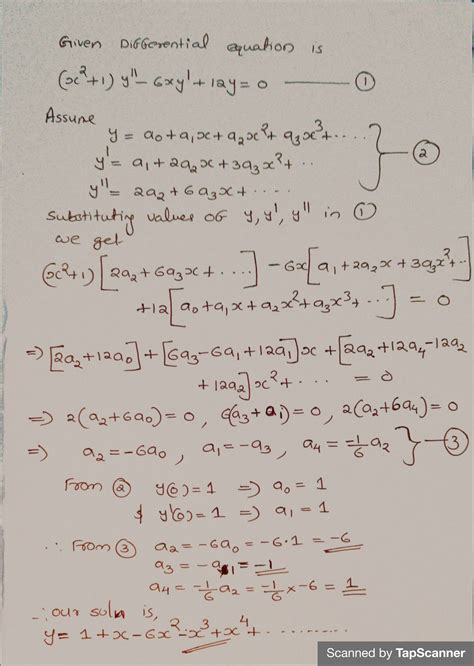 Given Differential equation is
(x²+1) y'' - 6xy' + 12y = 0 —— ①
Assume
y = a₀ + a₁x + a₂x² + a₃x³ + ....
y' = a₁ + 2a₂x + 3a₃x² + ..
y'' = 2a₂ + 6a₃x + .... } — ②
substituting values of y, y', y'' in ①
we get
(x²+1) [2a₂ + 6a₃x + ....] - 6x[a₁ + 2a₂x + 3a₃x² + ..]
+12[a₀ + a₁x + a₂x² + a₃x³ + ..] = 0
=> [2a₂+12a₀] + [6a₃-6a₁+12a₁]x + [2a₂+12a₄-12a₂
+ 12a₂]x² + ... = 0
=> 2(a₂+6a₀) = 0, 6(a₃+a₁) = 0, 2(a₂+6a₄) = 0
=> a₂ = -6a₀, a₁ = -a₃, a₄ = -1/6 a₂ } — ③
From ② y(0) = 1 => a₀ = 1
& y'(0) = 1 => a₁ = 1
∴ From ③ a₂ = -6a₀ = -6·1 = -6
a₃ = -a₁ = -1
a₄ = -1/6 a₂ = -1/6 × -6 = 1
∴ our soln is,
y = 1 + x - 6x² - x³ + x⁴ + ........
Scanned by TapScanner